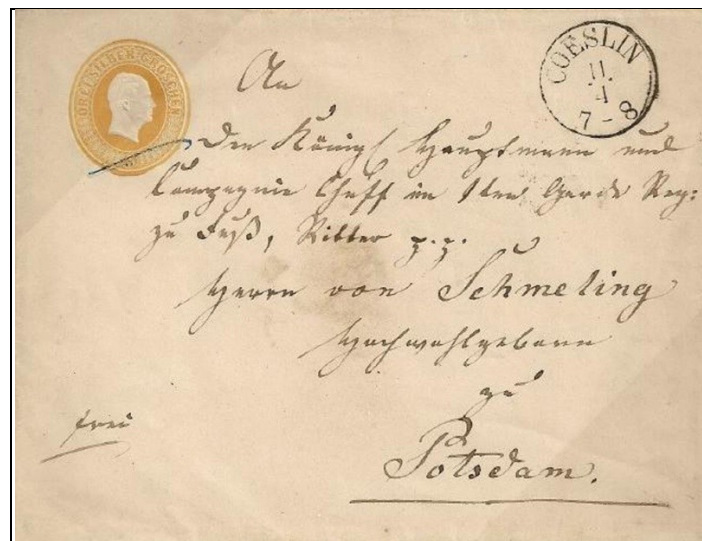 DREI SILBER GROSCHEN
COESLIN
11.
4
7 - 8
An
den Königl Hauptmann und
Compagnie Cheff im 1ten Garde Reg:
zu Fuß, Ritter p. p.
Herrn von Schmeling
Hochwohlgeboren
zu
frei
Potsdam.